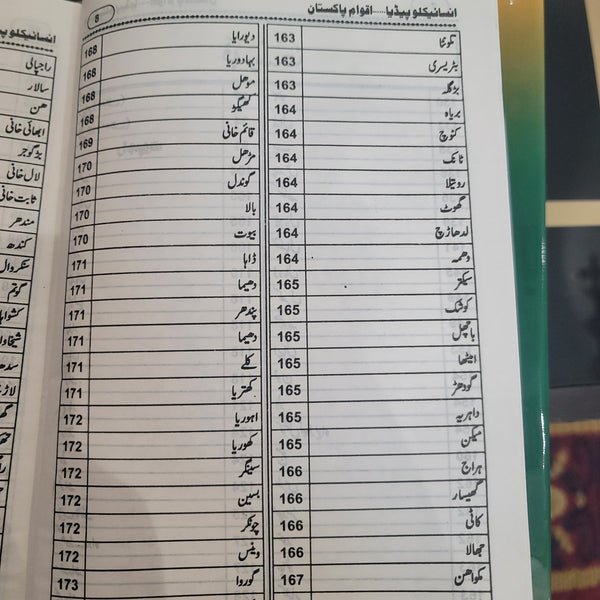 انسائیکلوپیڈیا.....اقوام پاکستان
8
نکوٹنا 163
بٹریسری 163
بڑگلہ 163
بریاہ 164
کنوچ 164
ٹانک 164
روتیلا 164
گھوٹ 164
لدھاڑچ 164
دھمہ 164
سیکتر 165
کوشک 165
باچھل 165
امیٹھا 165
گودھڑ 165
داہریہ 165
میکن 165
ہراج 166
گھیسار 166
کاٹی 166
جھالا 166
مکواھن 167
دیورایا 168
بہادوریا 168
موھل 168
کھیگو 168
قائم خانی 169
مڑھل 170
گوندل 170
بالا 170
بیوت 170
ڈاہا 171
دھیما 171
پندھر 171
دھیما 171
کلے 171
کھتریا 171
اہوریا 172
کھوریا 172
سینگر 172
بسین 172
چوٹکر 172
وینس 172
گوروا 173
انسائیکلوپی
راجپالی
سالار
ھن
ابھائی خانی
بڑگوجر
لال خانی
ثابت خانی
مندھر
کندھ
سنکروال
گوتم